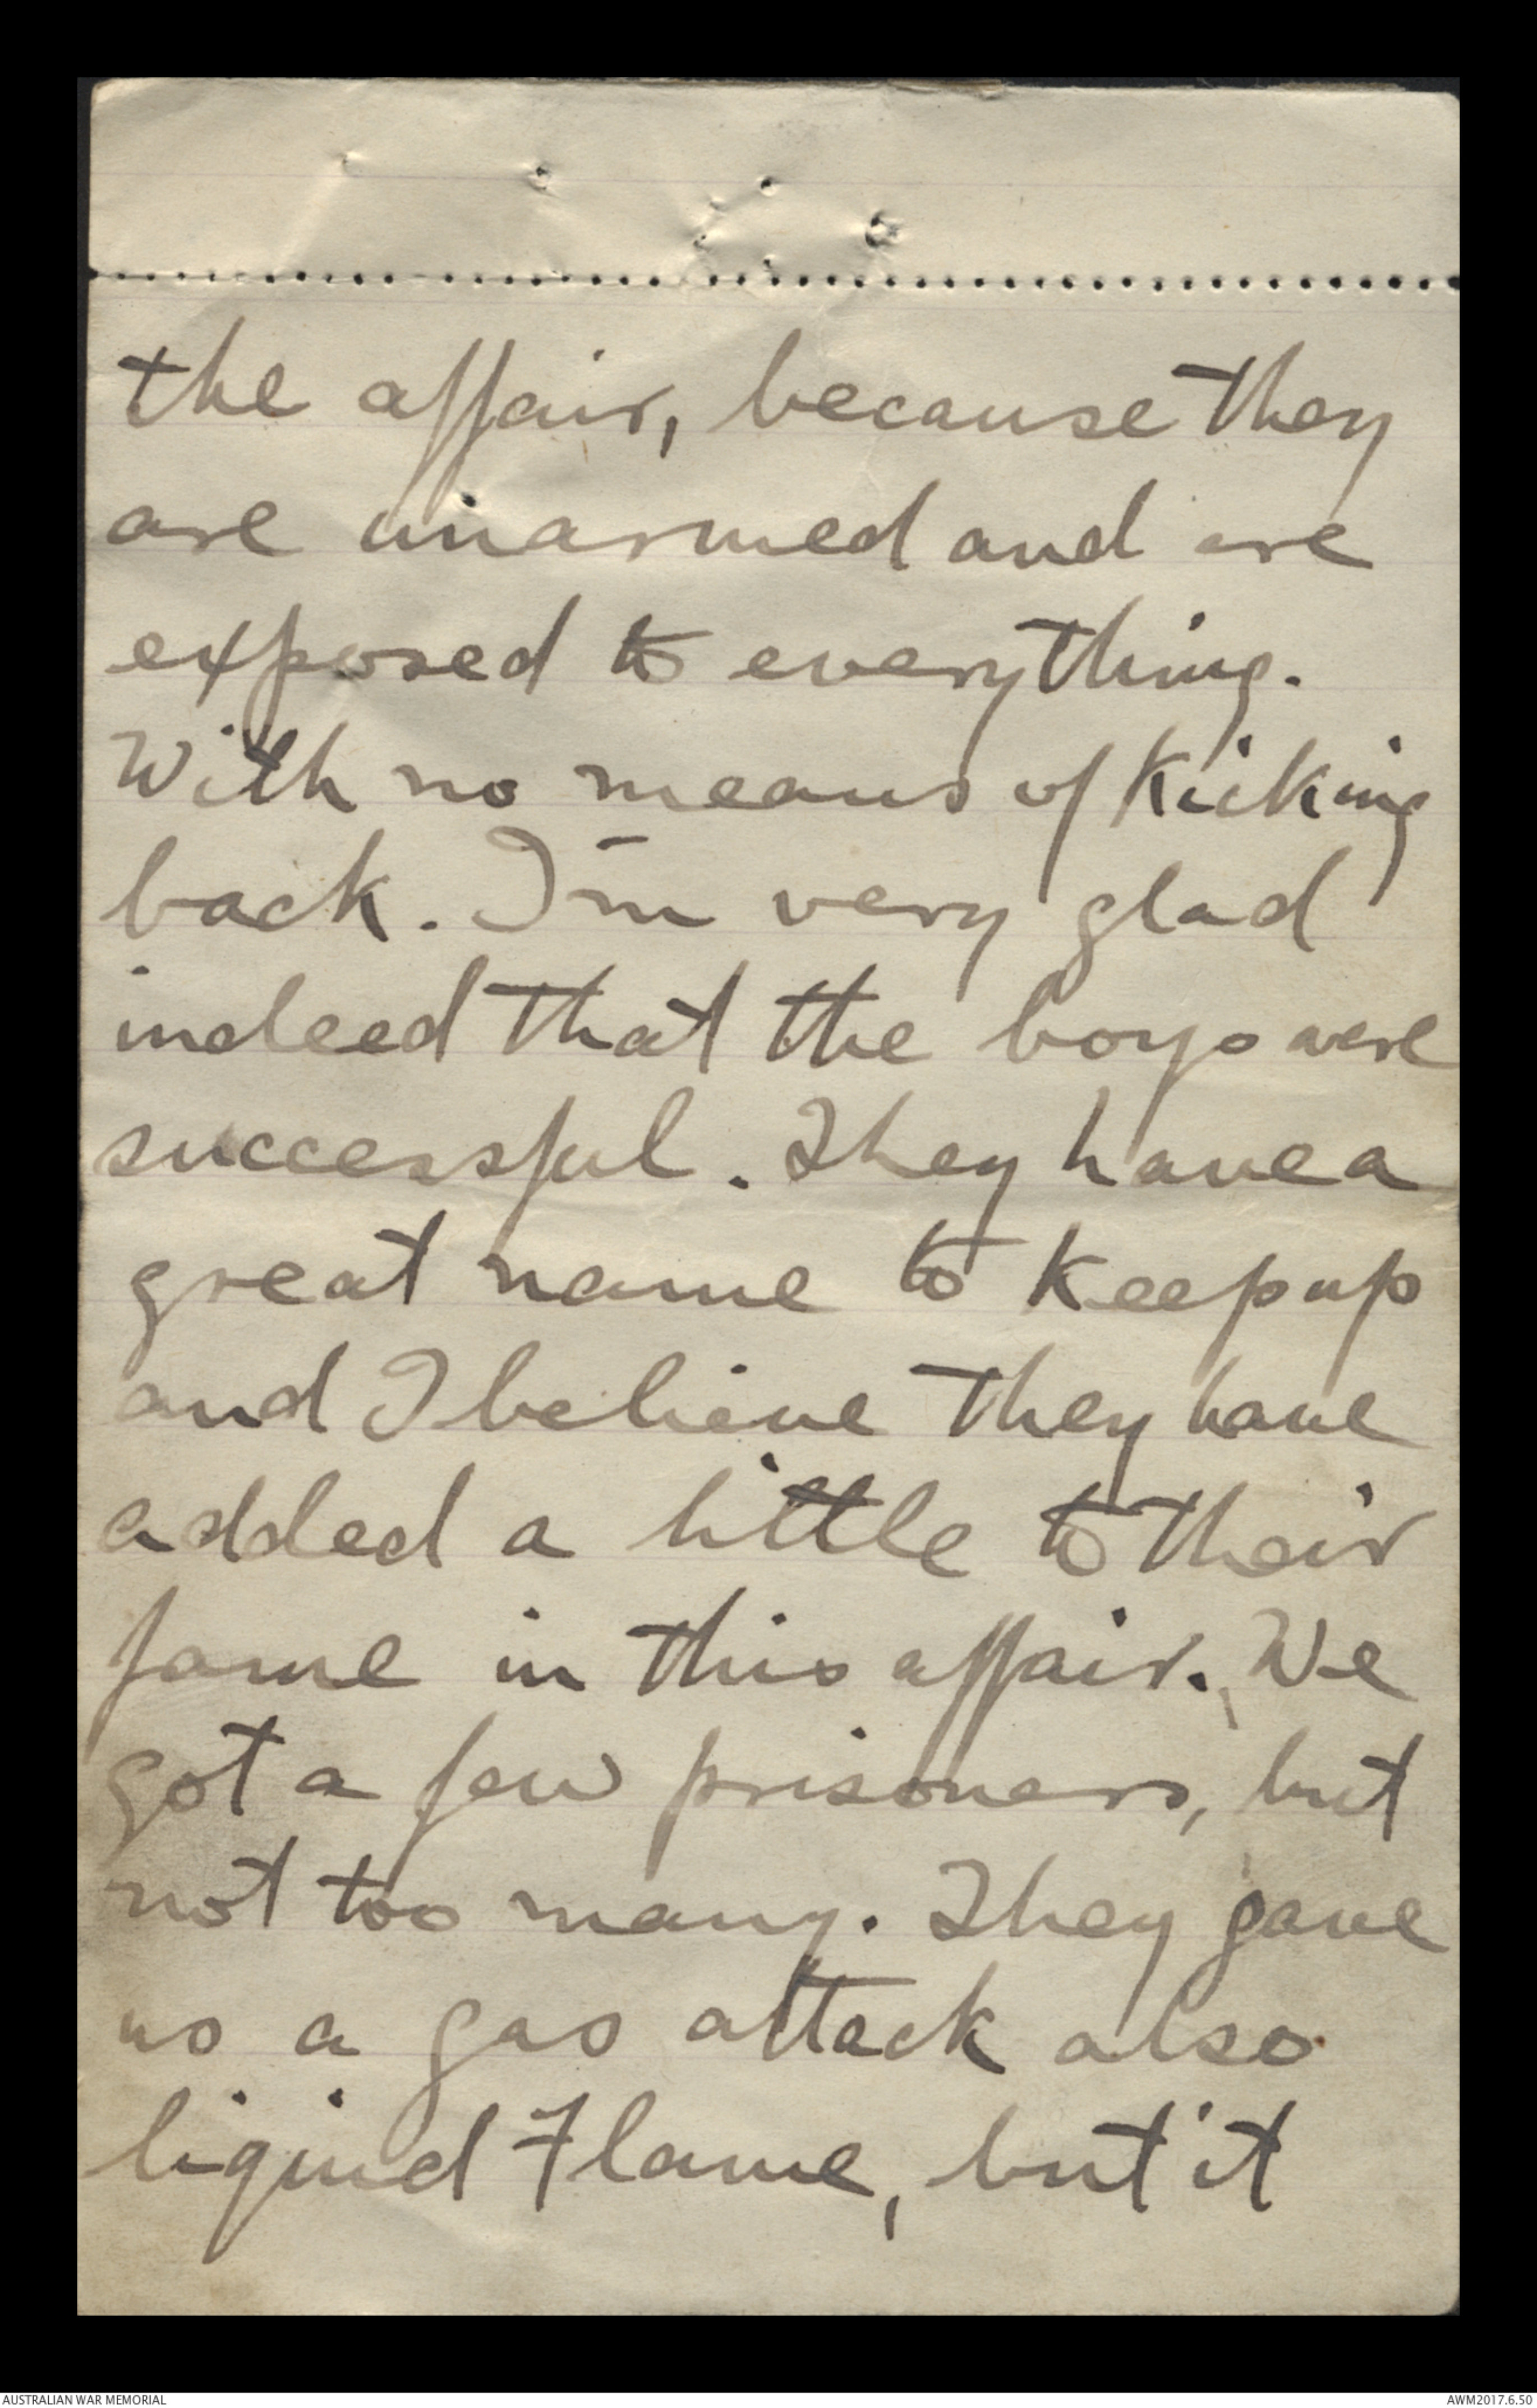 the affair, because they
are unarmed and are
exposed to everything.
With no means of Kicking
back. I'm very glad
indeed that the boys were
successful. They have a
great name to Keep up
and I believe they have
added a little to their
fame in this affair. We
got a few prisoners, but
not too many. They gave
us a gas attack also
liquid Flame, but it
AUSTRALIAN WAR MEMORIAL
AWM2017.6.50